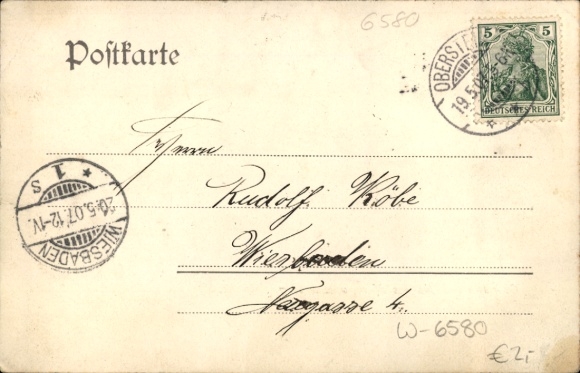 6580
Postkarte
5 5
DEUTSCHES REICH
OBERST
19.5.07
Herrn
Rudolf Köbe
Wiesbaden
Neugasse 4.
* 1 *
S
20.5.07.12-1V.
WIESBADEN
W-6580
€2,-